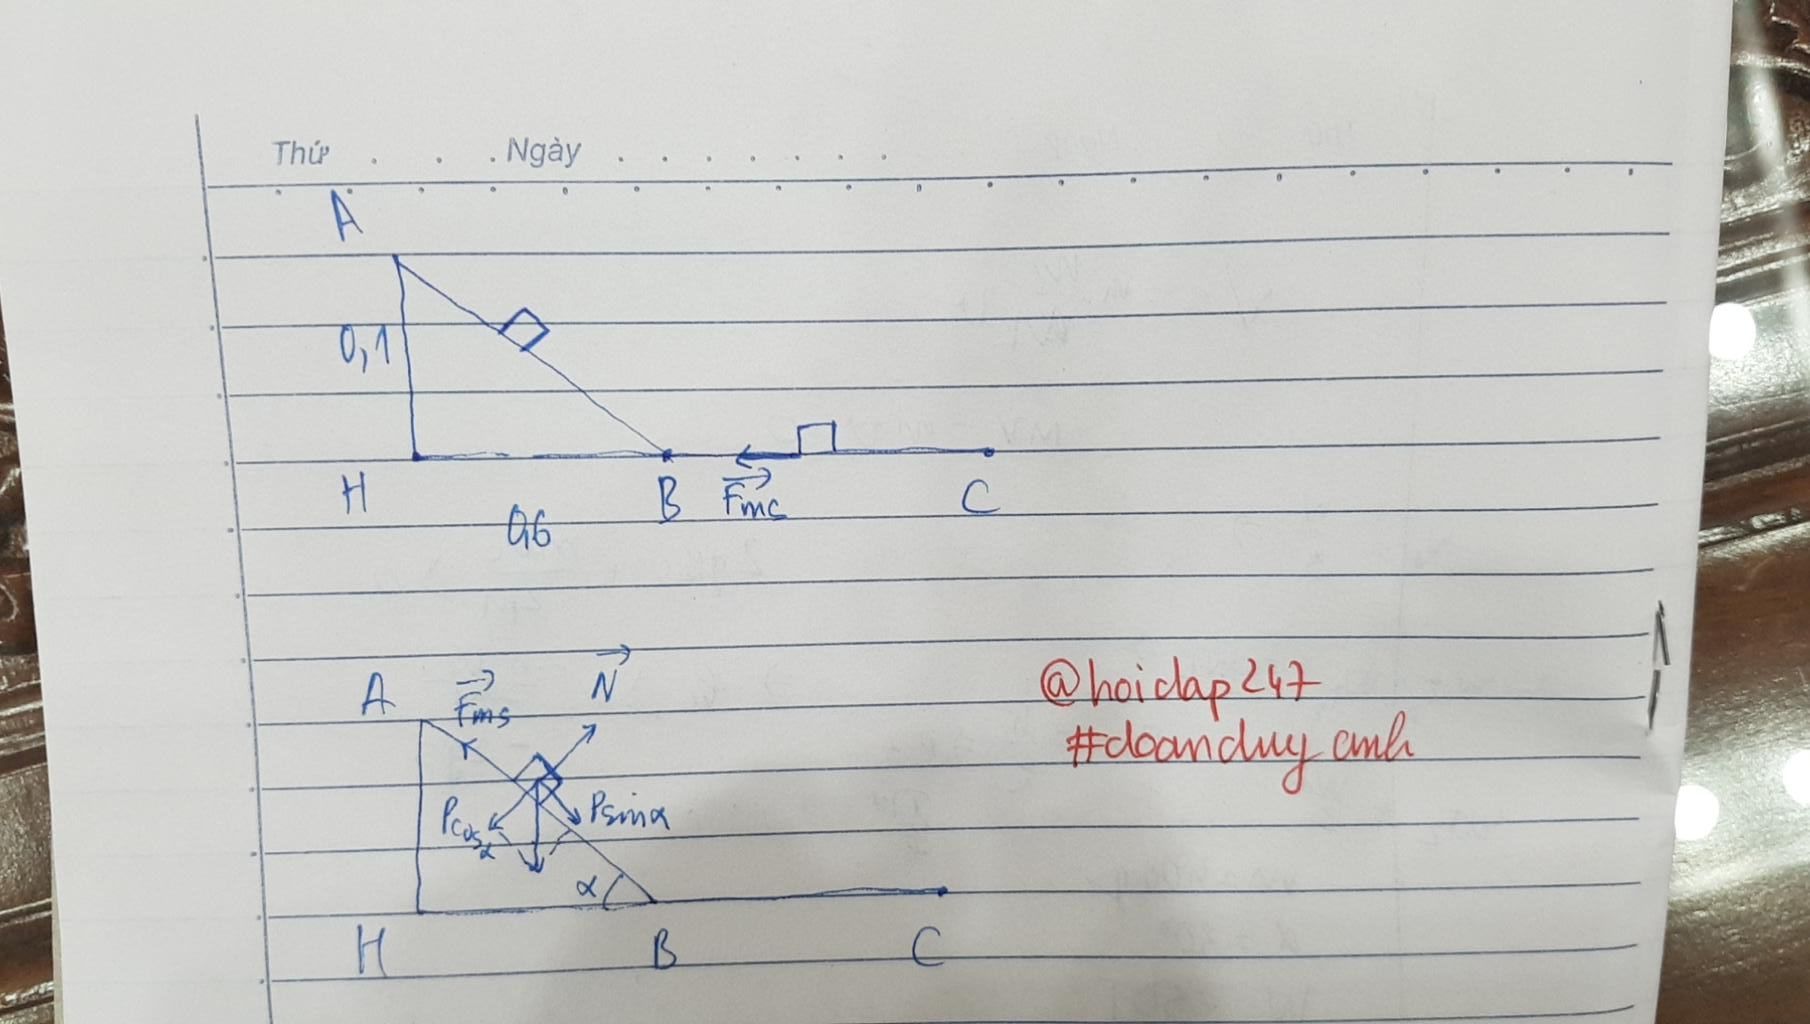 Thứ . . . Ngày . . . . . . .
A
0,1
H B Fmc C
0,6
A Fms N
Pcosα Psinα
α
H B C
@hoidap247
#doanduyanh